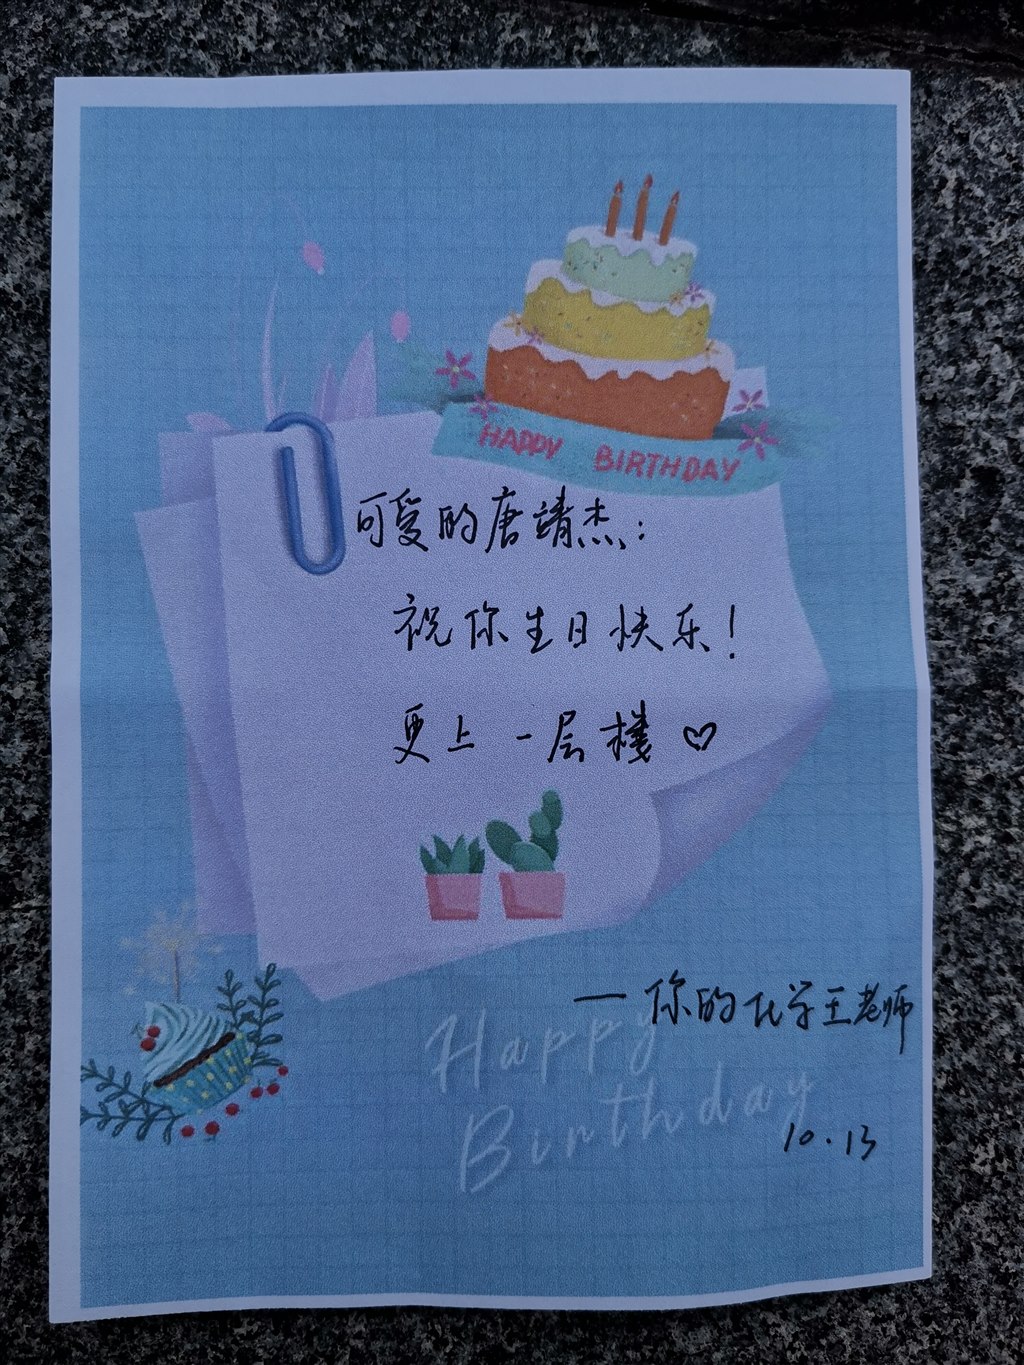 HAPPY BIRTHDAY
可爱的唐靖杰：
祝你生日快乐！
更上一层楼♡
——你的化学王老师
Happy
Birthday
10.13